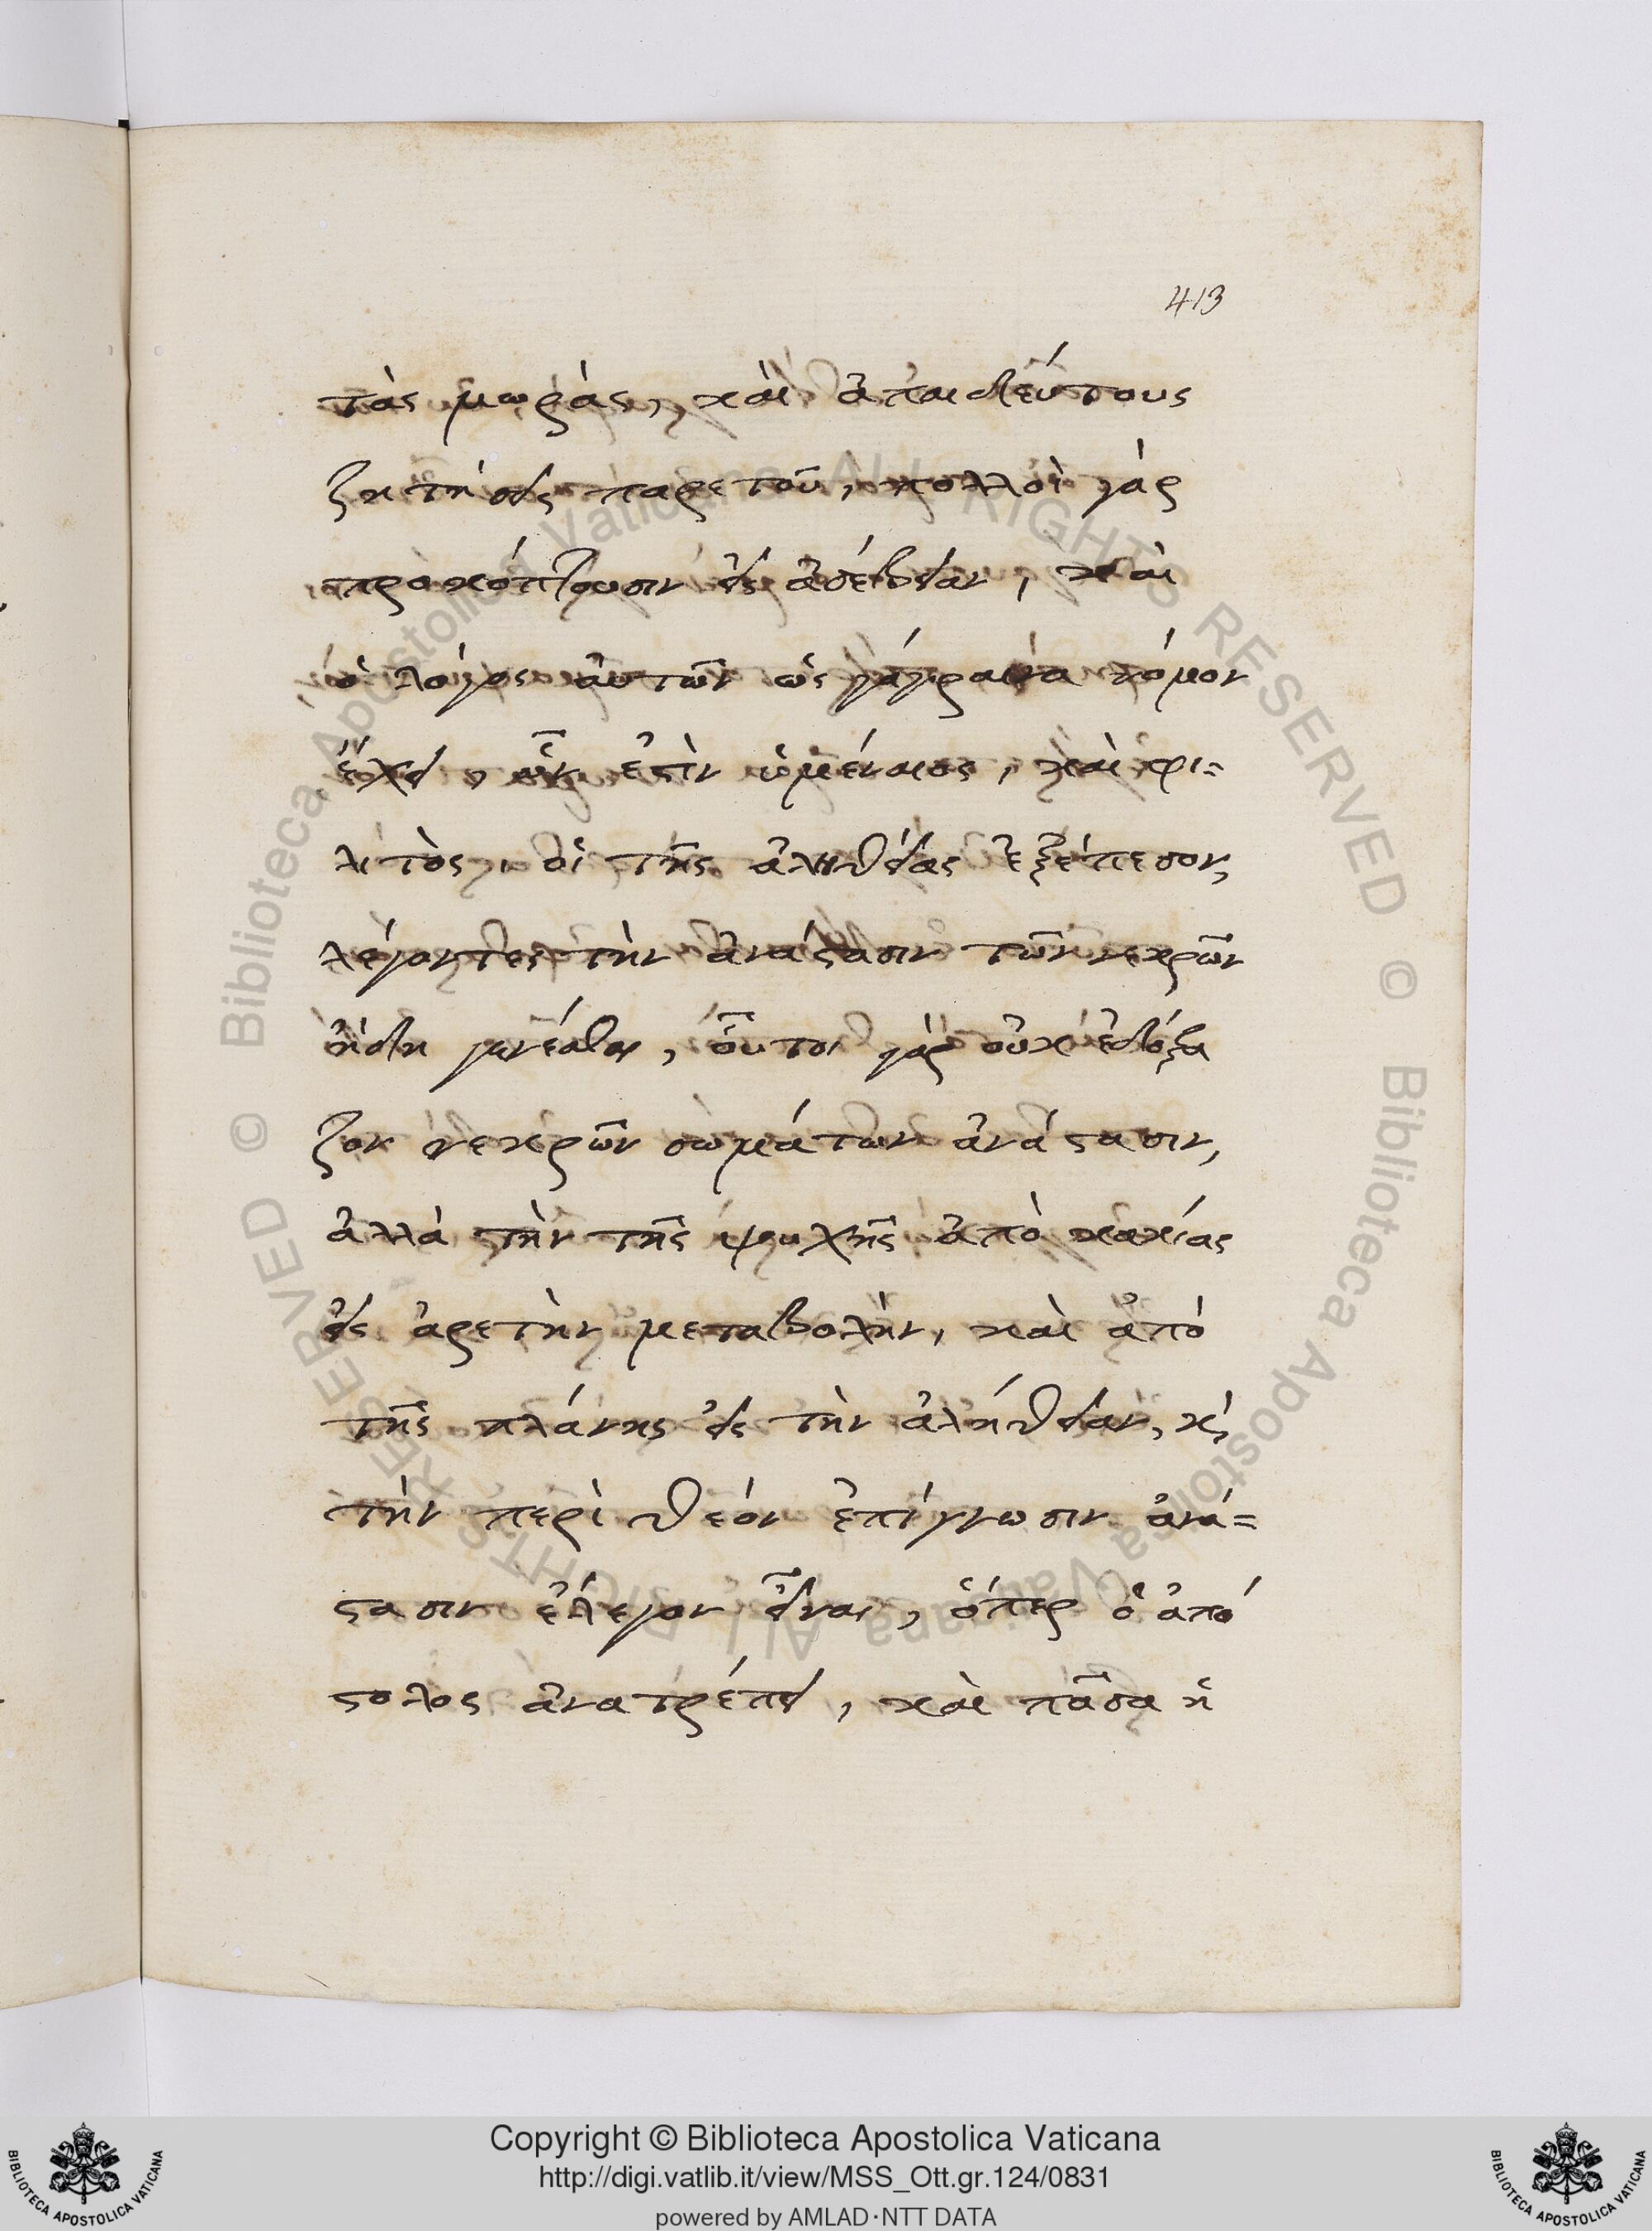 413
τὰς μωρὰς, καὶ ἀπαιδεύτους
ζητήσεις παρετοῦ, πολλοὶ γάρ
προκόπτουσιν εἰς ἀσέβειαν, καὶ
ὁ λόγος αὐτῶν ὡς γάγραινα νόμον
ἕχει, ὧν ἐστὶν ὑμέναιος, καὶ φι=
λιτὸς, οἱ τῆς ἀληθείας ἐξέπεσον,
λέγοντες τὴν ἀνάστασιν τῶν νεκρῶν
ἤδη γενέσθαι, οὗτοι γὰρ οὐκ ἐδόξα
ζον νεκρῶν σωμάτων ἀνάστασιν,
ἀλλὰ τὴν τῆς ψυχῆς ἀπὸ κακίας
εἰς ἀρετὴν μεταβολὴν, καὶ ἀπό
τῆς πλάνης εἰς τὴν ἀλήθειαν, κ
τὴν περὶ θεόν ἐπίγνωσιν ἀνά=
στασιν ἔλεγον εἶναι, ὅπερ ὁ ἀπό
στολος ἀνατρέπει, καὶ πᾶσα ἡ
© Biblioteca Apostolica Vaticana ALL RIGHTS RESERVED © Biblioteca Apostolica Vaticana ALL RIGHTS RESERVED
Copyright © Biblioteca Apostolica Vaticana
http://digi.vatlib.it/view/MSS_Ott.gr.124/0831
powered by AMLAD·NTT DATA
BIBLIOTECA APOSTOLICA VATICANA
BIBLIOTECA APOSTOLICA VATICANA